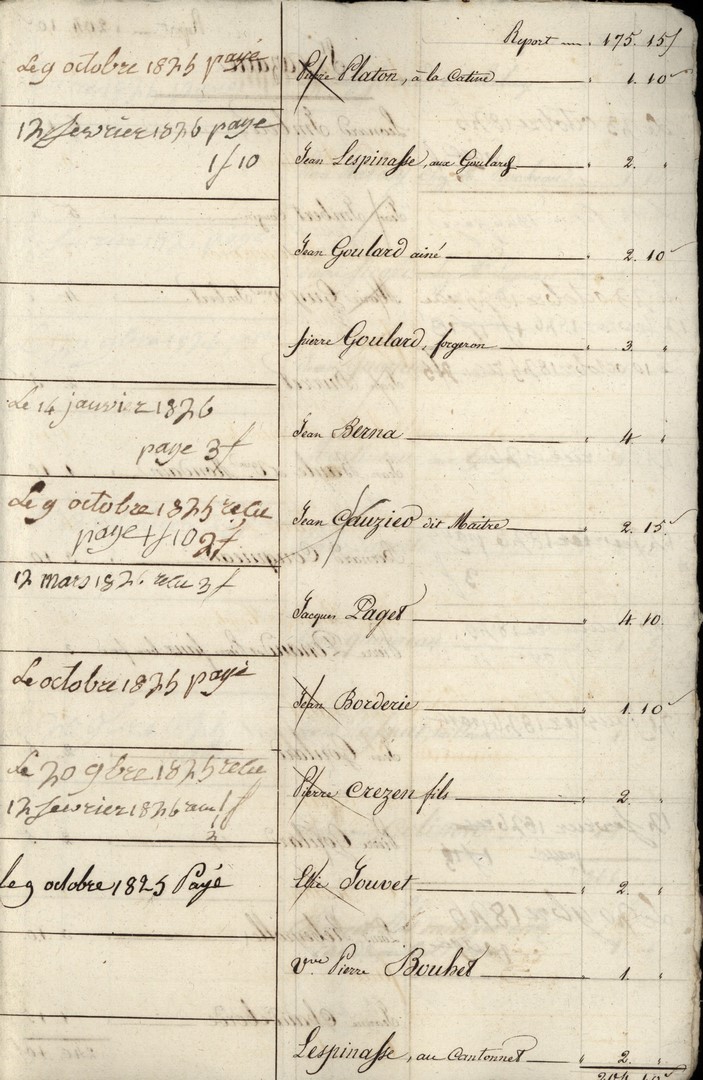 Report 175. 15 f
Le 9 octobre 1825 payé
Pierre Platon, à la Catine " 1. 10
12 fevrier 1826 paye
1 f 10
Jean Lespinasse, aux Goulard " 2. "
Jean Goulard ainé " 2. 10
pierre Goulard, forgeron " 3. "
Le 14 janvier 1826
paye 3 f
Jean Berna " 4 "
Le 9 octobre 1825 recu
paye 1 f 10 2 f
Jean Cauzied dit Maitre " 2. 15
12 mars 1826. recu 3 f
Jacques Paget " 4. 10.
Le octobre 1825 payé
Jean Borderie " 1. 10
Le 20 9bre 1825 recu
12 fevrier 1826 recu 1 f
Pierre Crezen fils " 2. "
le 9 octobre 1825 Payé
Elie Jouvet " 2. "
Vve Pierre Bouhet " 1. "
Lespinasse, au Cantonnet " 2. "
204. 10